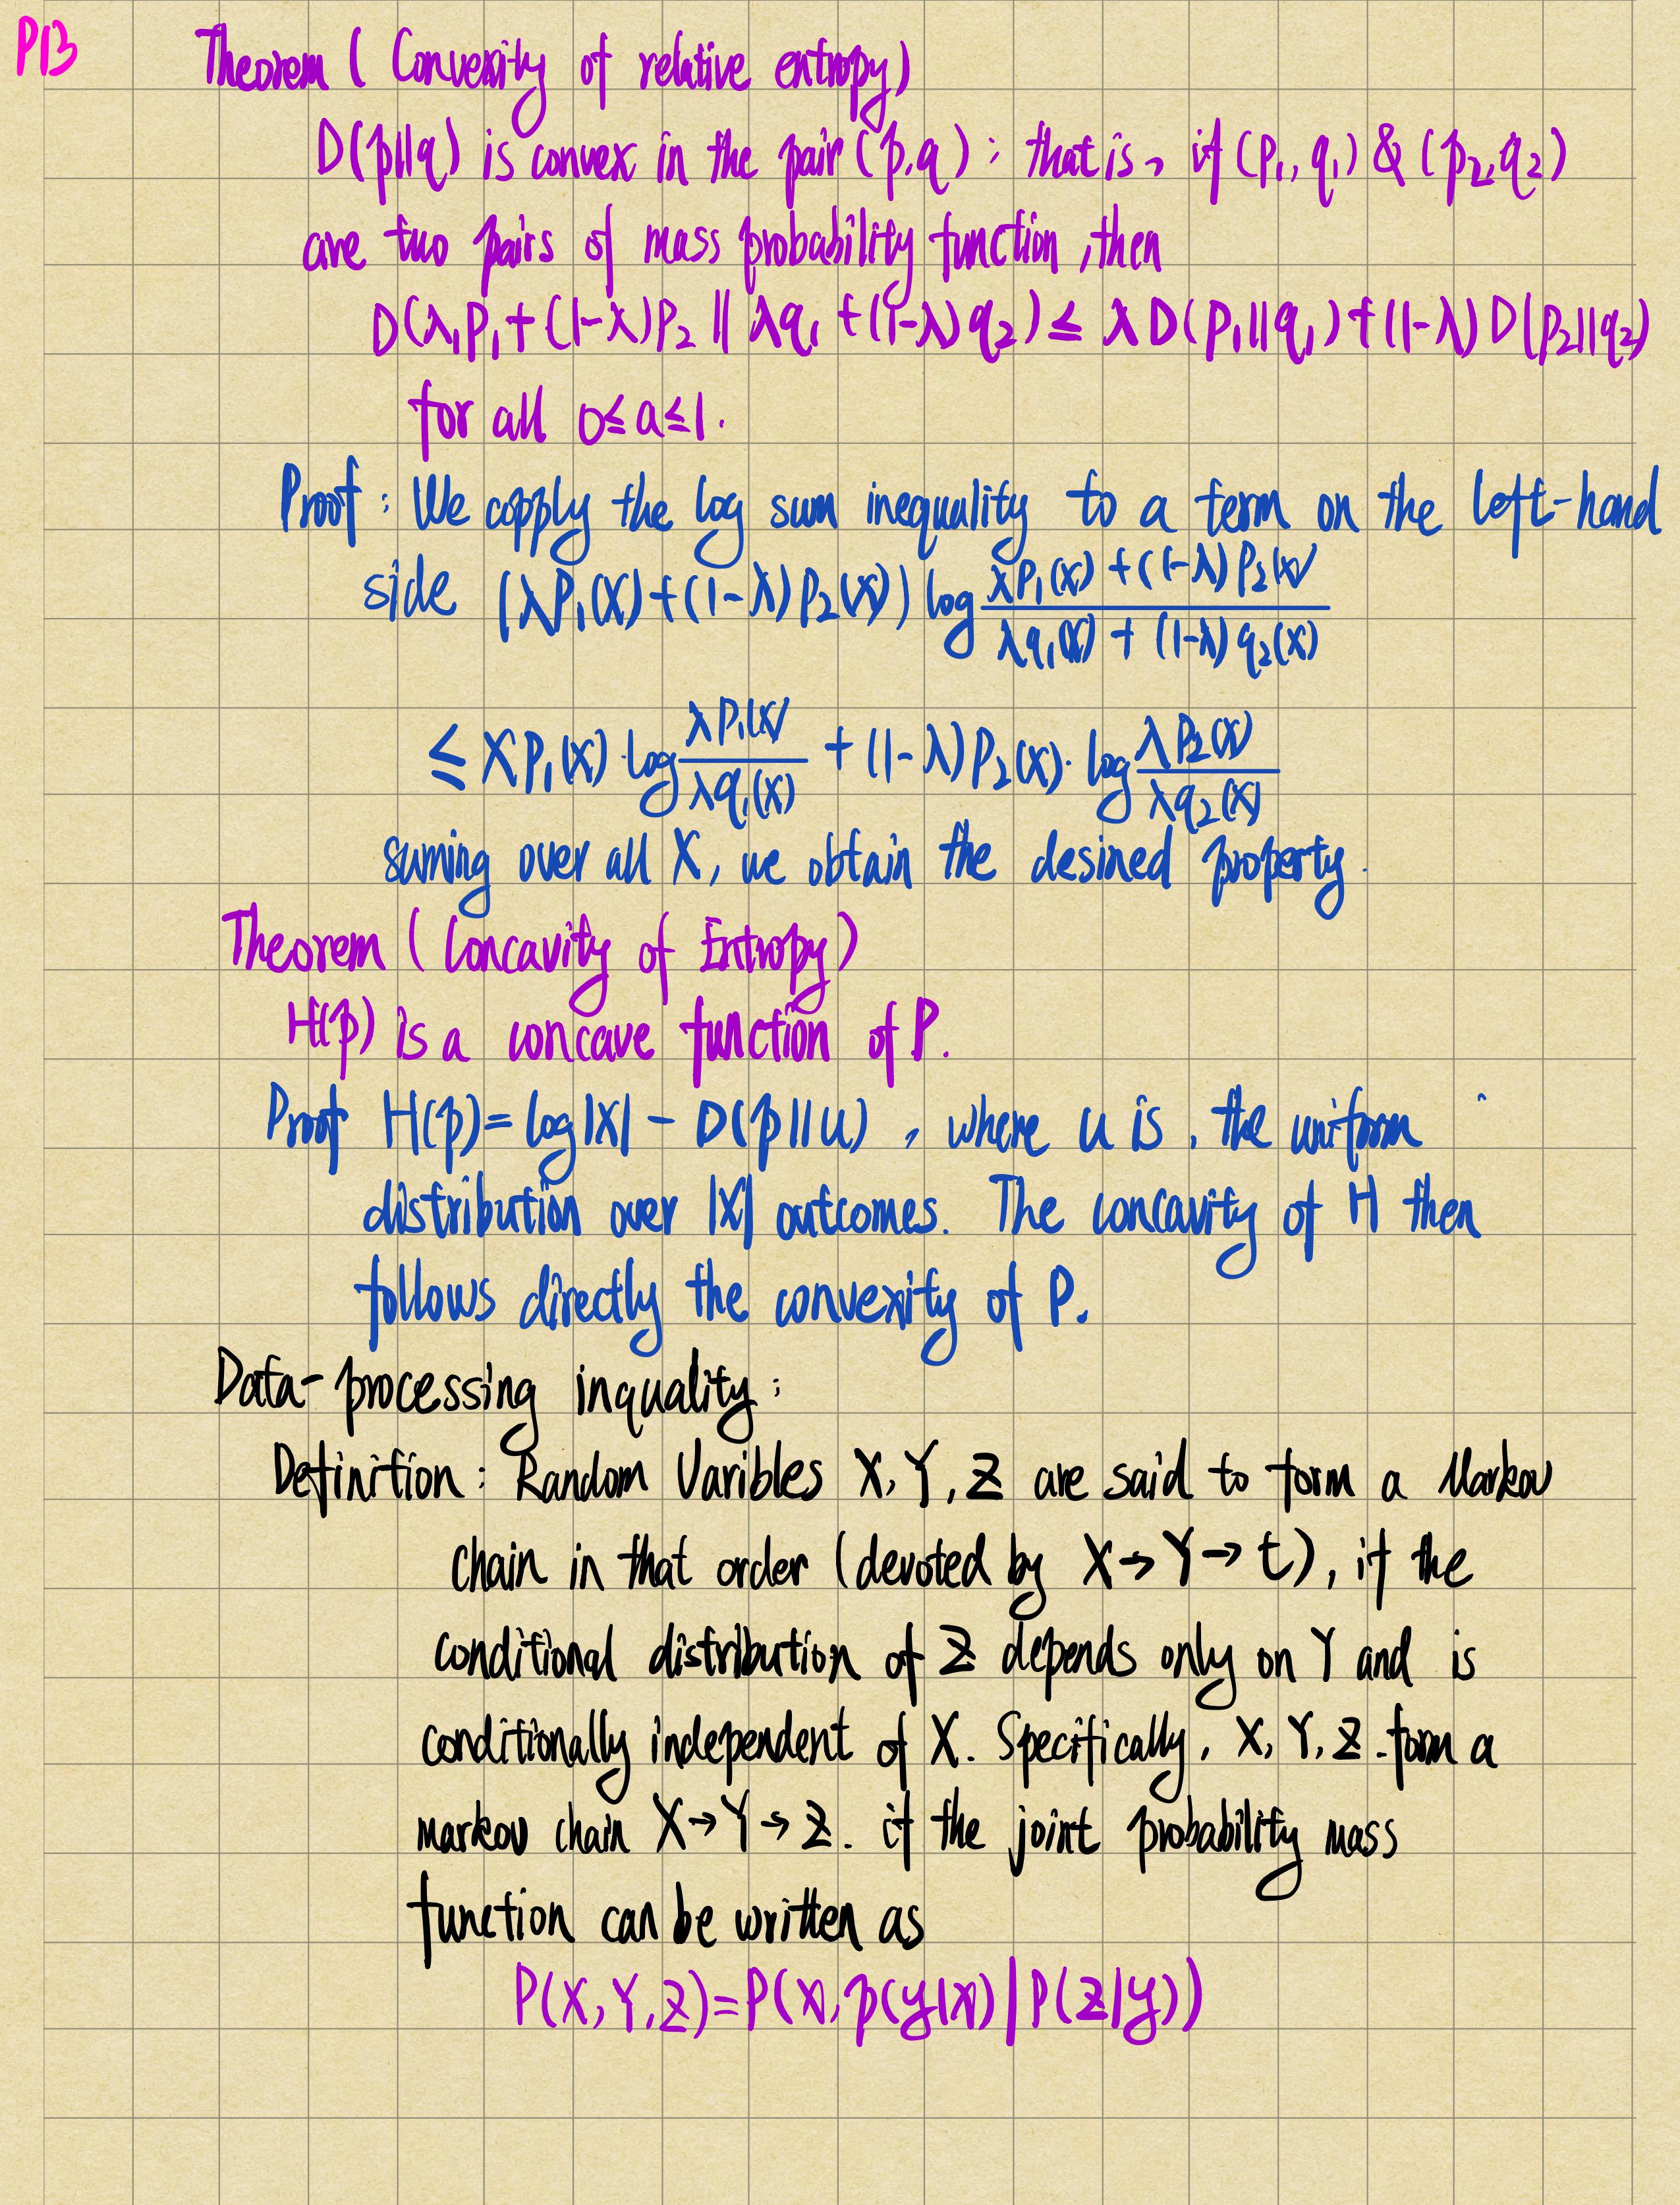 P13
Theorem ( Convexity of relative entropy)
D(p||q) is convex in the pair (p,q) : that is, if (p₁, q₁) & (p₂,q₂)
are two pairs of mass probability function, then
D(λ₁p₁+(1-λ)p₂ || λq₁ +(1-λ)q₂) ≤ λD(p₁||q₁)+(1-λ)D(p₂||q₂)
for all 0≤a≤1.
Proof : We copply the log sum inequality to a term on the left-hand
side (λP₁(x)+(1-λ)p₂(x)) log (λP₁(x)+(1-λ)P₂(x))/(λq₁(x) + (1-λ)q₂(x))
≤ λp₁(x)·log (λP₁(x))/(λq₁(x)) + (1-λ)p₂(x)·log (λP₂(x))/(λq₂(x))
suming over all X, we obtain the desined property.
Theorem ( Concavity of Entropy)
H(p) is a concave function of P.
Proof H(p)= log|X| - D(p||u) , where u is , the uniform
distribution over |X| outcomes. The concavity of H then
follows directly the convexity of P.
Data-processing inquality :
Definition : Random Varibles X,Y,Z are said to form a Markov
chain in that order (devoted by X→Y→t), if the
conditional distribution of Z depends only on Y and is
conditionally independent of X. Specifically, X,Y,Z form a
markov chain X→Y→Z. if the joint probability mass
function can be written as
P(X,Y,Z)=P(x,p(y|x)|P(z|y))